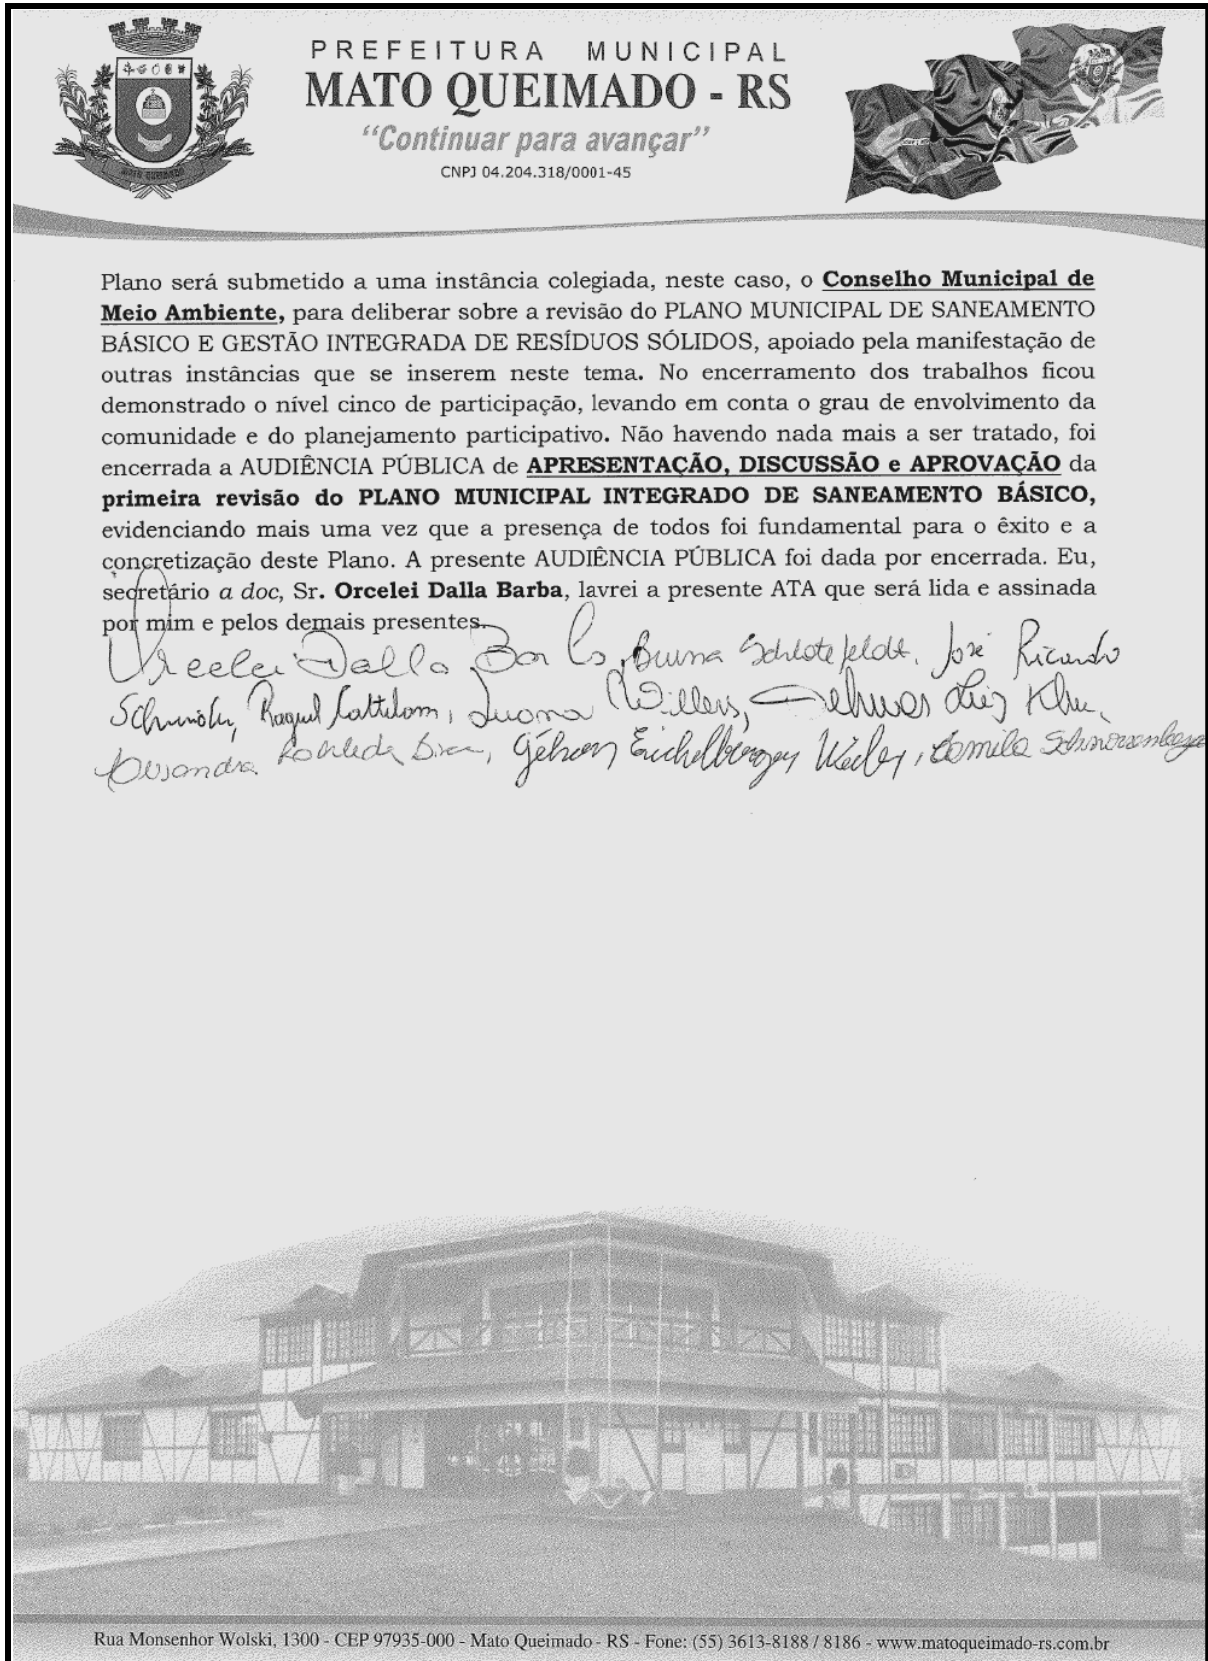 PREFEITURA MUNICIPAL
MATO QUEIMADO - RS
"Continuar para avançar"
CNPJ 04.204.318/0001-45
MATO QUEIMADO
Plano será submetido a uma instância colegiada, neste caso, o Conselho Municipal de
Meio Ambiente, para deliberar sobre a revisão do PLANO MUNICIPAL DE SANEAMENTO
BÁSICO E GESTÃO INTEGRADA DE RESÍDUOS SÓLIDOS, apoiado pela manifestação de
outras instâncias que se inserem neste tema. No encerramento dos trabalhos ficou
demonstrado o nível cinco de participação, levando em conta o grau de envolvimento da
comunidade e do planejamento participativo. Não havendo nada mais a ser tratado, foi
encerrada a AUDIÊNCIA PÚBLICA de APRESENTAÇÃO, DISCUSSÃO e APROVAÇÃO da
primeira revisão do PLANO MUNICIPAL INTEGRADO DE SANEAMENTO BÁSICO,
evidenciando mais uma vez que a presença de todos foi fundamental para o êxito e a
concretização deste Plano. A presente AUDIÊNCIA PÚBLICA foi dada por encerrada. Eu,
secretário a doc, Sr. Orcelei Dalla Barba, lavrei a presente ATA que será lida e assinada
por mim e pelos demais presentes.
Orcelei Dalla Barba, Bruna Schlotefeldt, José Ricardo
Raquel Luana Willers, Luiz
Gélson Eichelberger
Rua Monsenhor Wolski, 1300 - CEP 97935-000 - Mato Queimado - RS - Fone: (55) 3613-8188 / 8186 - www.matoqueimado-rs.com.br